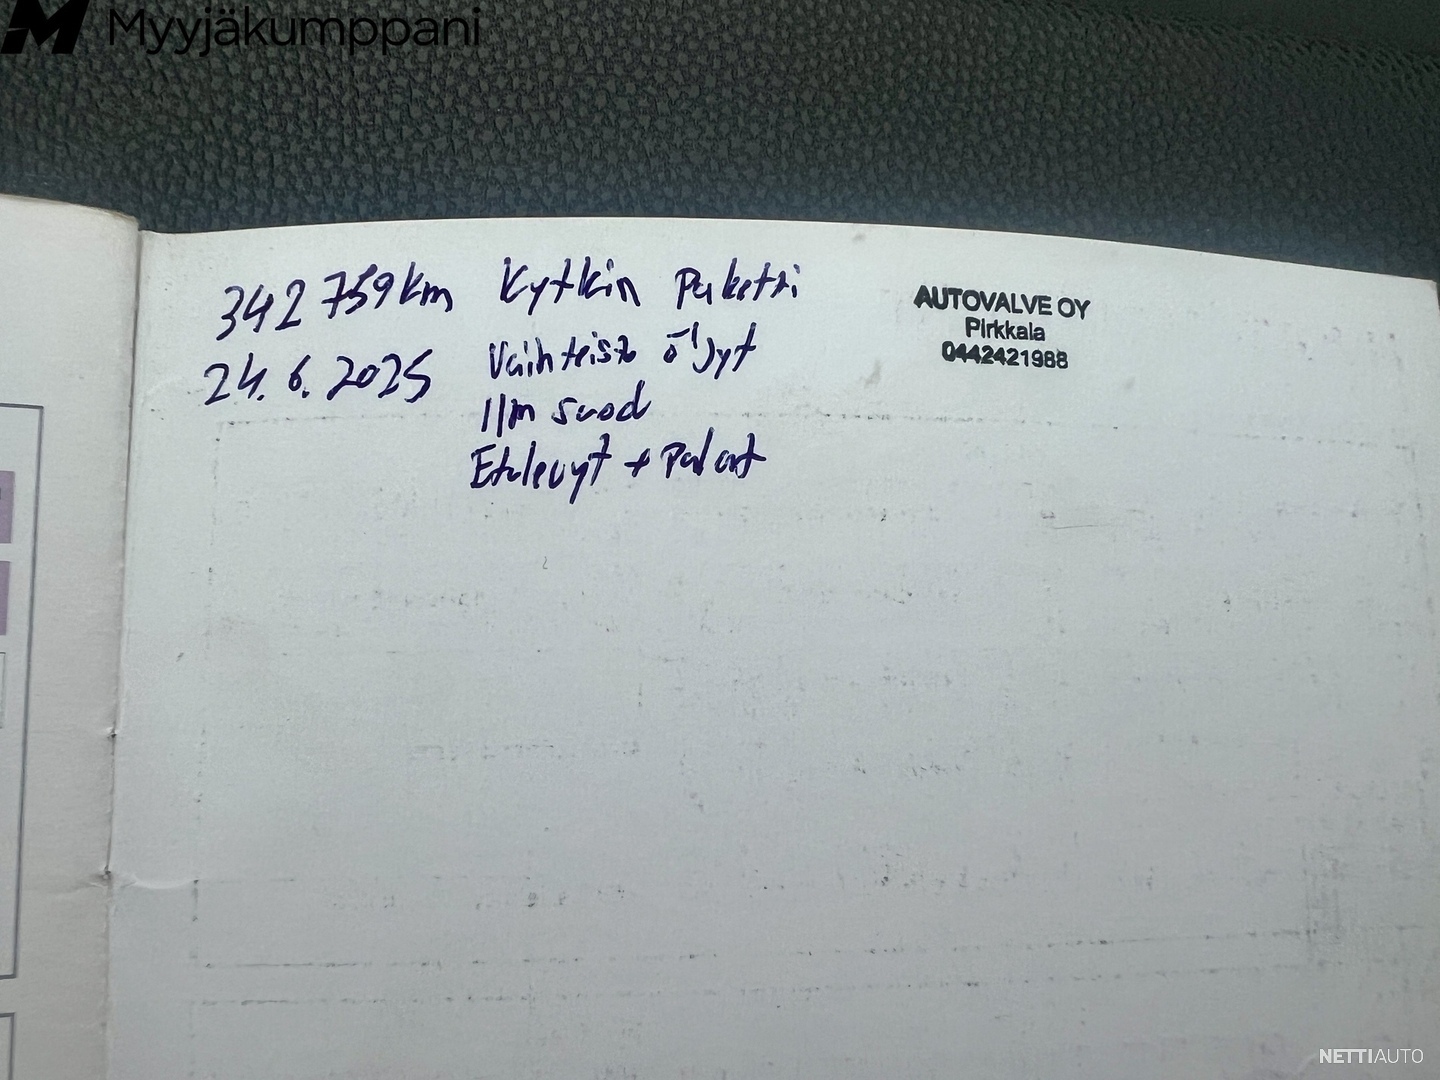 Myyjäkumppani
342 759 km Kytkin paketti
24.6.2025 Vaihteisto öljyt
Ilm suod
Etulevyt + Palat
AUTOVALVE OY
Pirkkala
0442421988
NETTIAUTO